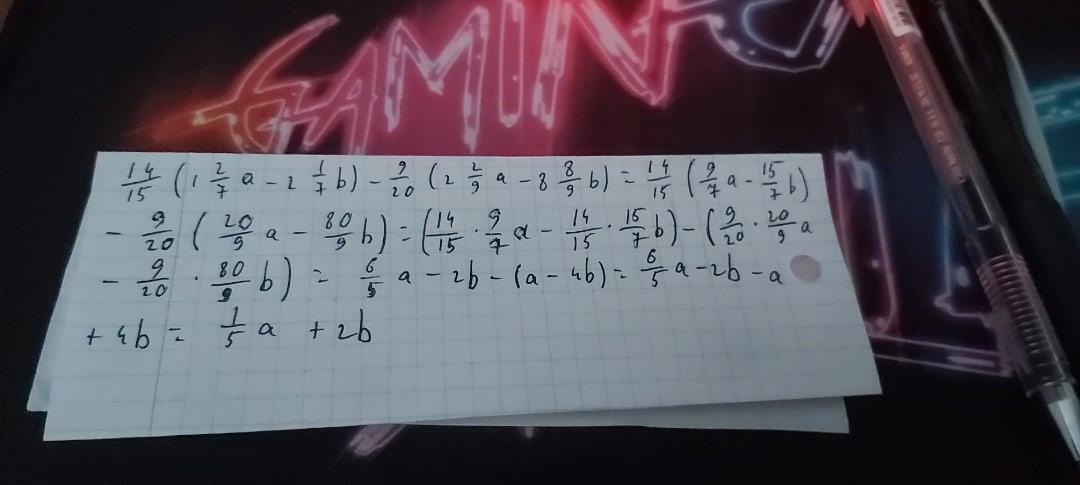 GAMING
14/15 (1 2/7 a - 2 1/7 b) - 9/20 (2 2/9 a - 8 8/9 b) = 14/15 (9/7 a - 15/7 b)
- 9/20 (20/9 a - 80/9 b) = (14/15 · 9/7 a - 14/15 · 15/7 b) - (9/20 · 20/9 a
- 9/20 · 80/9 b) = 6/5 a - 2b - (a - 4b) = 6/5 a - 2b - a
+ 4b = 1/5 a + 2b